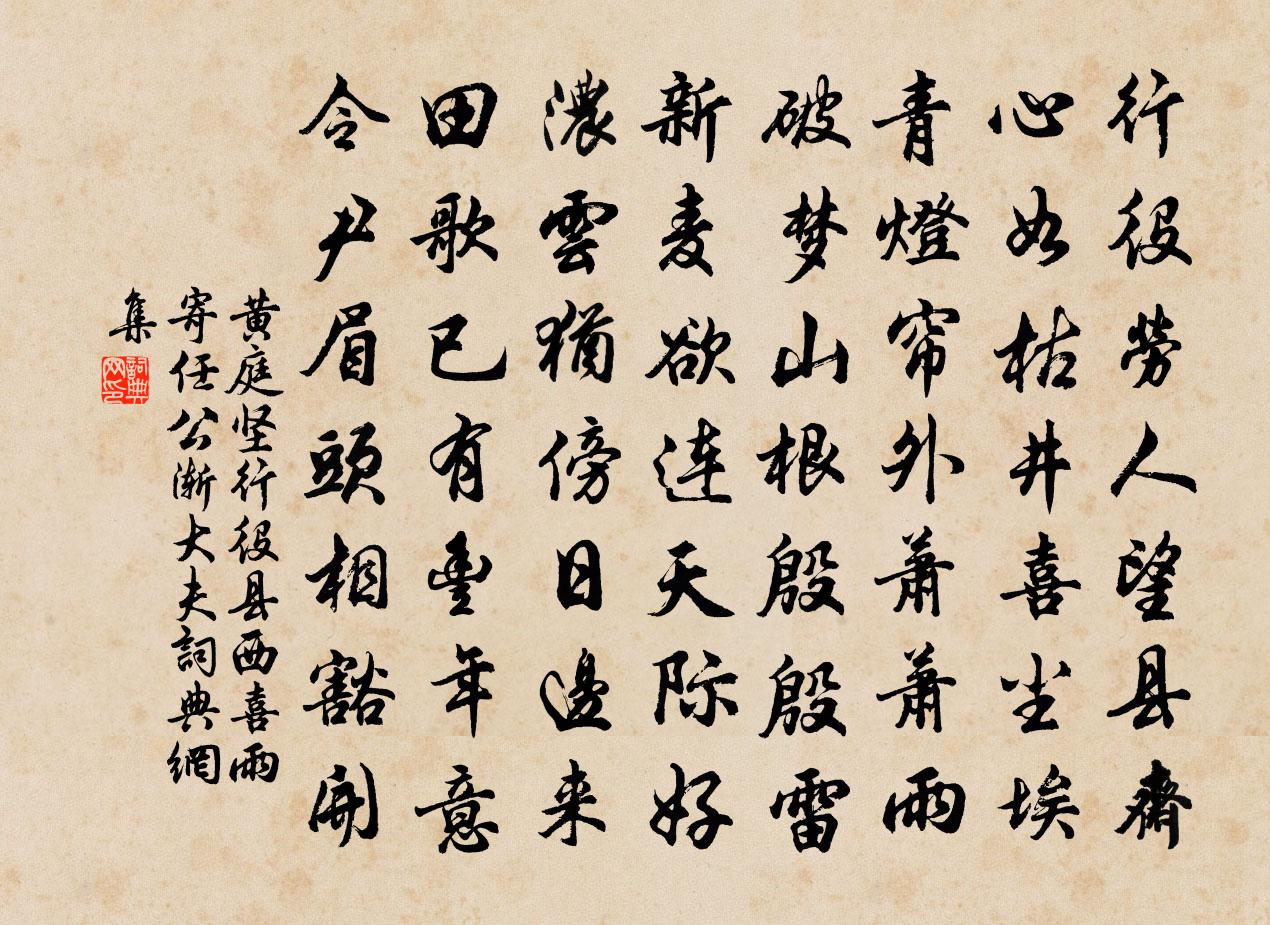 行役勞人望县齋
心如枯井喜尘埃
青燈帘外萧萧雨
破梦山根殷殷雷
新麦欲连天际好
濃雲猶傍日邊来
田歌已有豊年意
令尹眉頭相豁開
黄庭坚行役县西喜雨
寄任公渐大夫詞典網
集
詞典
网印